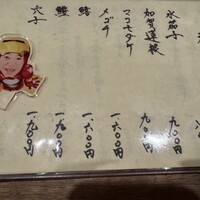 水茄子
加賀蓮根 九〇〇円
マコモダケ 九〇〇円
メゴチ 一、六〇〇円
鱚 一、六〇〇円
鱧 一、九〇〇円
穴子 一、九〇〇円